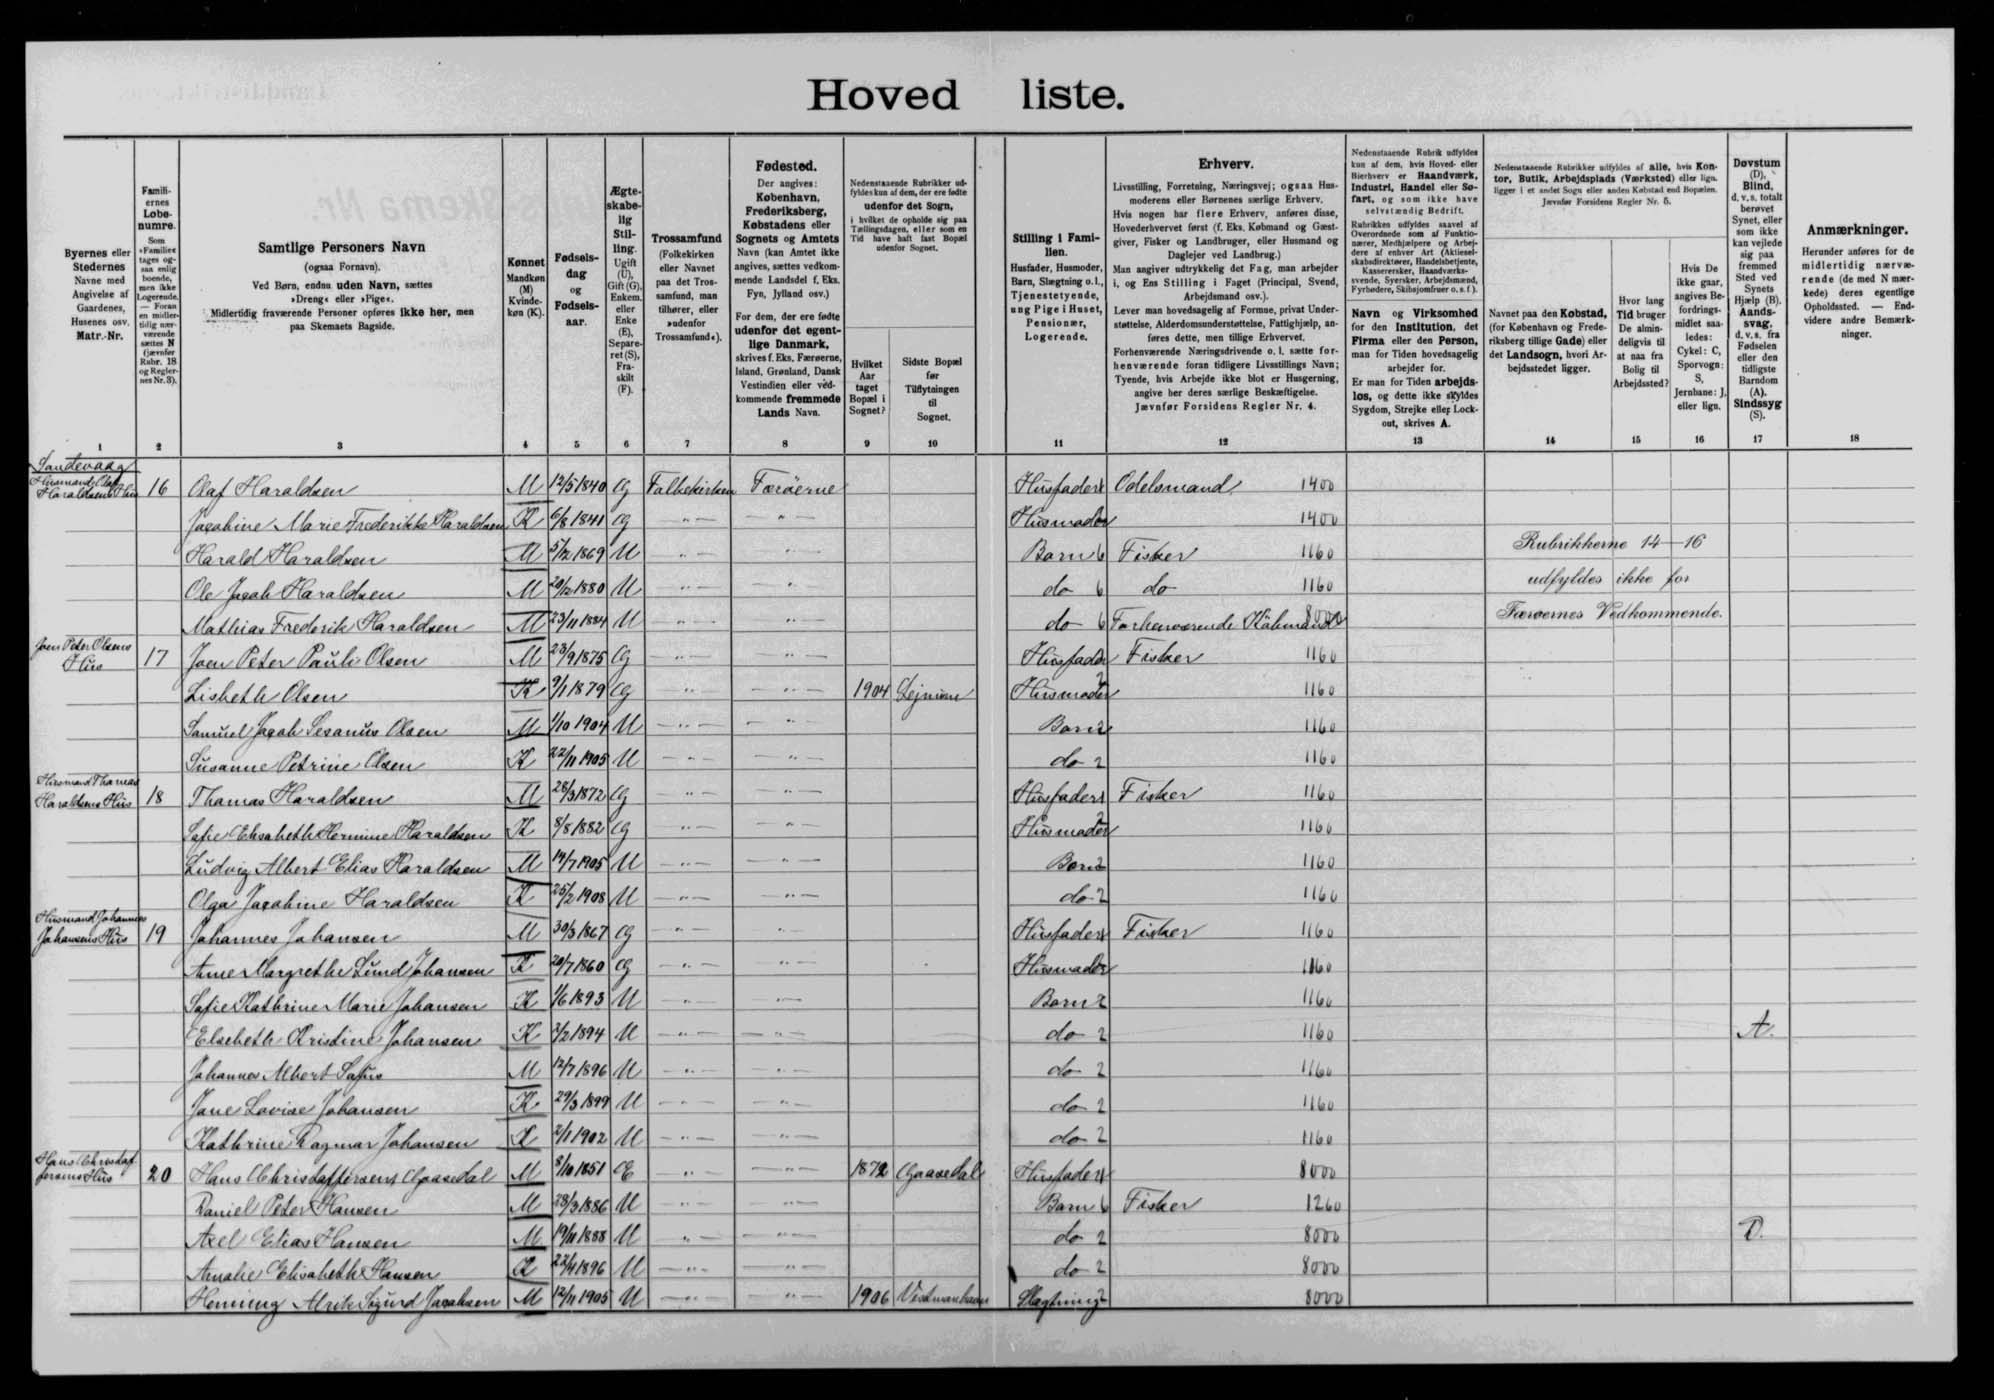 Hoved liste.
Byernes eller
Stedernes
Navne med
Angivelse af
Gaardenes,
Husenes osv.
Matr.-Nr.
Famili-
ernes
Løbe-
numre.
Som
»Familie«
tages og-
saa enlig
boende,
men ikke
Logerende.
— Foran
en midler-
tidig nær-
værende
sættes N
(jævnfør
Rubr. 18
og Regler-
nes Nr. 3).
Samtlige Personers Navn
(ogsaa Fornavn).
Ved Børn, endnu uden Navn, sættes
»Dreng« eller »Pige«.
Midlertidig fraværende Personer opføres ikke her, men
paa Skemaets Bagside.
Kønnet
Mandkøn
(M)
Kvinde-
køn (K).
Fødsels-
dag
og
Fødsels-
aar.
Ægte-
skabe-
lig
Stil-
ling.
Ugift
(U),
Gift (G),
Enkem.
eller
Enke
(E),
Separe-
ret (S),
Fra-
skilt
(F).
Trossamfund
(Folkekirken
eller Navnet
paa det Tros-
samfund, man
tilhører, eller
»udenfor
Trossamfund«).
Fødested.
Der angives:
København,
Frederiksberg,
Købstadens eller
Sognets og Amtets
Navn (kan Amtet ikke
angives, sættes vedkom-
mende Landsdel f. Eks.
Fyn, Jylland osv.)
For dem, der ere fødte
udenfor det egent-
lige Danmark,
skrives f. Eks. Færøerne,
Island, Grønland, Dansk
Vestindien eller ved-
kommende fremmede
Lands Navn.
Nedenstaaende Rubrikker ud-
fyldes kun af dem, der ere fødte
udenfor det Sogn,
i hvilket de opholde sig paa
Tællingsdagen, eller som en
Tid have haft fast Bopæl
udenfor Sognet.
Hvilket
Aar
taget
Bopæl i
Sognet?
Sidste Bopæl
før
Tilflytningen
til
Sognet.
Stilling i Fami-
lien.
Husfader, Husmoder,
Barn, Slægtning o. l.,
Tjenestetyende,
ung Pige i Huset,
Pensionær,
Logerende.
Erhverv.
Livsstilling, Forretning, Næringsvej; ogsaa Hus-
moderens eller Børnenes særlige Erhverv.
Hvis nogen har flere Erhverv, anføres disse,
Hovederhvervet først (f. Eks. Købmand og Gæst-
giver, Fisker og Landbruger, eller Husmand og
Daglejer ved Landbrug.)
Man angiver udtrykkelig det Fag, man arbejder
i, og Ens Stilling i Faget (Principal, Svend,
Arbejdsmand osv.).
Lever man hovedsagelig af Formue, privat Under-
støttelse, Alderdomsunderstøttelse, Fattighjælp, an-
føres dette, men tillige Erhvervet.
Forhenværende Næringsdrivende o. l. sætte for-
henværende foran tidligere Livsstillings Navn;
Tyende, hvis Arbejde ikke blot er Husgerning,
angive her deres særlige Beskæftigelse.
Jævnfør Forsidens Regler Nr. 4.
Nedenstaaende Rubrik udfyldes
kun af dem, hvis Hoved- eller
Bierhverv er Haandværk,
Industri, Handel eller Sø-
fart, og som ikke have
selvstændig Bedrift.
Rubrikkes udfyldes saavel af
Overordnede som af Funktio-
nærer, Medhjælpere og Arbej-
dere af enhver Art (Aktiesel-
skabsdirektører, Handelsbetjente,
Kasserersker, Haandværks-
svende, Syersker, Arbejdsmænd,
Fyrbødere, Skibsjomfruer o. s. f.).
Navn og Virksomhed
for den Institution, det
Firma eller den Person,
man for Tiden hovedsagelig
arbejder for.
Er man for Tiden arbejds-
løs, og dette ikke skyldes
Sygdom, Strejke eller Lock-
out, skrives A.
Nedenstaaende Rubrikker udfyldes af alle, hvis Kon-
tor, Butik, Arbejdsplads (Værksted) eller lign.
ligger i et andet Sogn eller anden Købstad end Bopælen.
Jævnfør Forsidens Regler Nr. 5.
Navnet paa den Købstad,
(for København og Frede-
riksberg tillige Gade) eller
det Landsogn, hvori Ar-
bejdsstedet ligger.
Hvor lang
Tid bruger
De almin-
deligvis til
at naa fra
Bolig til
Arbejdssted?
Hvis De
ikke gaar,
angives Be-
fordrings-
midlet saa-
ledes:
Cykel: C,
Sporvogn:
S,
Jernbane: J,
eller lign.
Døvstum
(D),
Blind,
d. v. s. totalt
berøvet
Synet, eller
som ikke
kan vejlede
sig paa
fremmed
Sted ved
Synets
Hjælp (B).
Aands-
svag,
d. v. s. fra
Fødselen
eller den
tidligste
Barndom
(A).
Sindssyg
(S).
Anmærkninger.
Herunder anføres for de
midlertidig nærvæ-
rende (de med N mær-
kede) deres egentlige
Opholdssted. — End-
videre andre Bemærk-
ninger.
1 2 3 4 5 6 7 8 9 10 11 12 13 14 15 16 17 18
Sandevaag
Husmand Olaf
Haraldsens Hus 16 Olaf Haraldsen M 12/5 1840 G Folkekirken Færöerne Husfader 1 Odelsmand 1400
Jacobine Marie Frederikke Haraldsen K 6/8 1841 G -"- -"- Husmoder 1400
Harald Haraldsen M 5/2 1869 U -"- -"- Barn 6 Fisker 1160 Rubrikkerne 14—16
Ole Jacob Haraldsen M 20/2 1880 U -"- -"- do 6 do 1160 udfyldes ikke for
Mathias Frederik Haraldsen M 23/11 1884 U -"- -"- do 6 Forhenværende Köbmand 8000 Færøernes Vedkommende.
Joen Peter Olsens
Hus 17 Joen Peter Pauli Olsen M 23/9 1875 G -"- -"- Husfader Fisker 1160
Lisbeth Olsen K 9/1 1879 G -"- -"- 1904 Husmoder 2 1160
Samuel Jacob Sesanus Olsen M 1/10 1904 U -"- -"- Barn 2 1160
Susanne Petrine Olsen K 22/11 1905 U -"- -"- do 2 1160
Husmand Thomas
Haraldsens Hus 18 Thomas Haraldsen M 28/3 1872 G -"- -"- Husfader 1 Fisker 1160
Sofie Elisabeth Hermine Haraldsen K 8/8 1882 G -"- -"- Husmoder 2 1160
Ludvig Albert Elias Haraldsen M 14/7 1905 U -"- -"- Barn 2 1160
Olga Jacobine Haraldsen K 25/2 1908 U -"- -"- do 2 1160
Husmand Johannes
Johansens Hus 19 Johannes Johansen M 30/3 1867 G -"- -"- Husfader 1 Fisker 1160
Anne Margrethe Lund Johansen K 20/7 1860 G -"- -"- Husmoder 1160
Sofie Kathrine Marie Johansen K 1/6 1893 U -"- -"- Barn 2 1160
Elsebeth Kristine Johansen K 2/2 1894 U -"- -"- do 2 1160 A.
Johannes Albert Sofus M 12/7 1896 U -"- -"- do 2 1160
Jane Lovise Johansen K 29/3 1899 U -"- -"- do 2 1160
Kathrine Dagmar Johansen K 2/1 1902 U -"- -"- do 2 1160
Hans Christof-
fersens Hus 20 Hans Christoffersen Gaasedal M 8/10 1851 E -"- -"- 1872 Gaasedal Husfader 1 8000
Daniel Peter Hansen M 28/3 1886 U -"- -"- Barn 6 Fisker 1260
Axel Elias Hansen M 19/11 1888 U -"- -"- do 2 8000 D.
Amalie Elisabeth Hansen K 1896 U -"- -"- do 2 8000
Henning Alrik Sigurd Jacobsen M 12/11 1905 U -"- -"- 1906 Vestmanhavn Slægtning 2 8000